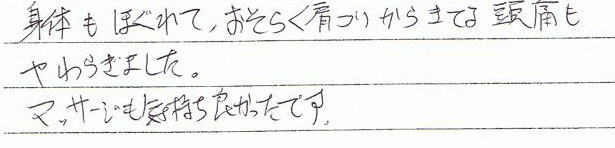 身体もほぐれて,おそらく肩コリからきてる頭痛も
やわらぎました。
マッサージも気持ち良かったです.